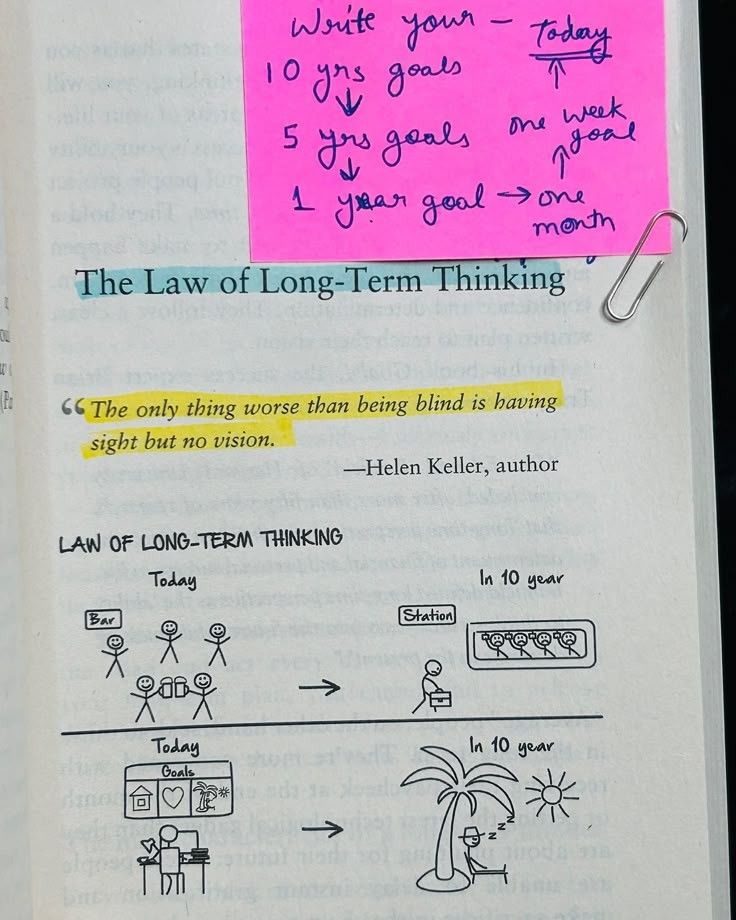 Write your – Today
10 yrs goals
5 yrs goals one week goal
1 year goal → one month
The Law of Long-Term Thinking
“The only thing worse than being blind is having
sight but no vision.
—Helen Keller, author
LAW OF LONG-TERM THINKING
Today
In 10 year
Bar
Station
Today
In 10 year
Goals
z z z